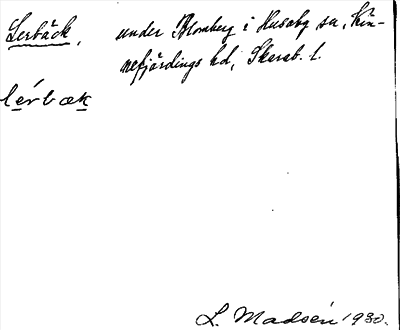 Lerbäck, under Blomberg i Husaby sn, Kin-
nefjärdings hd, Skarab. l.
lérbæk
L. Madsén 1930.